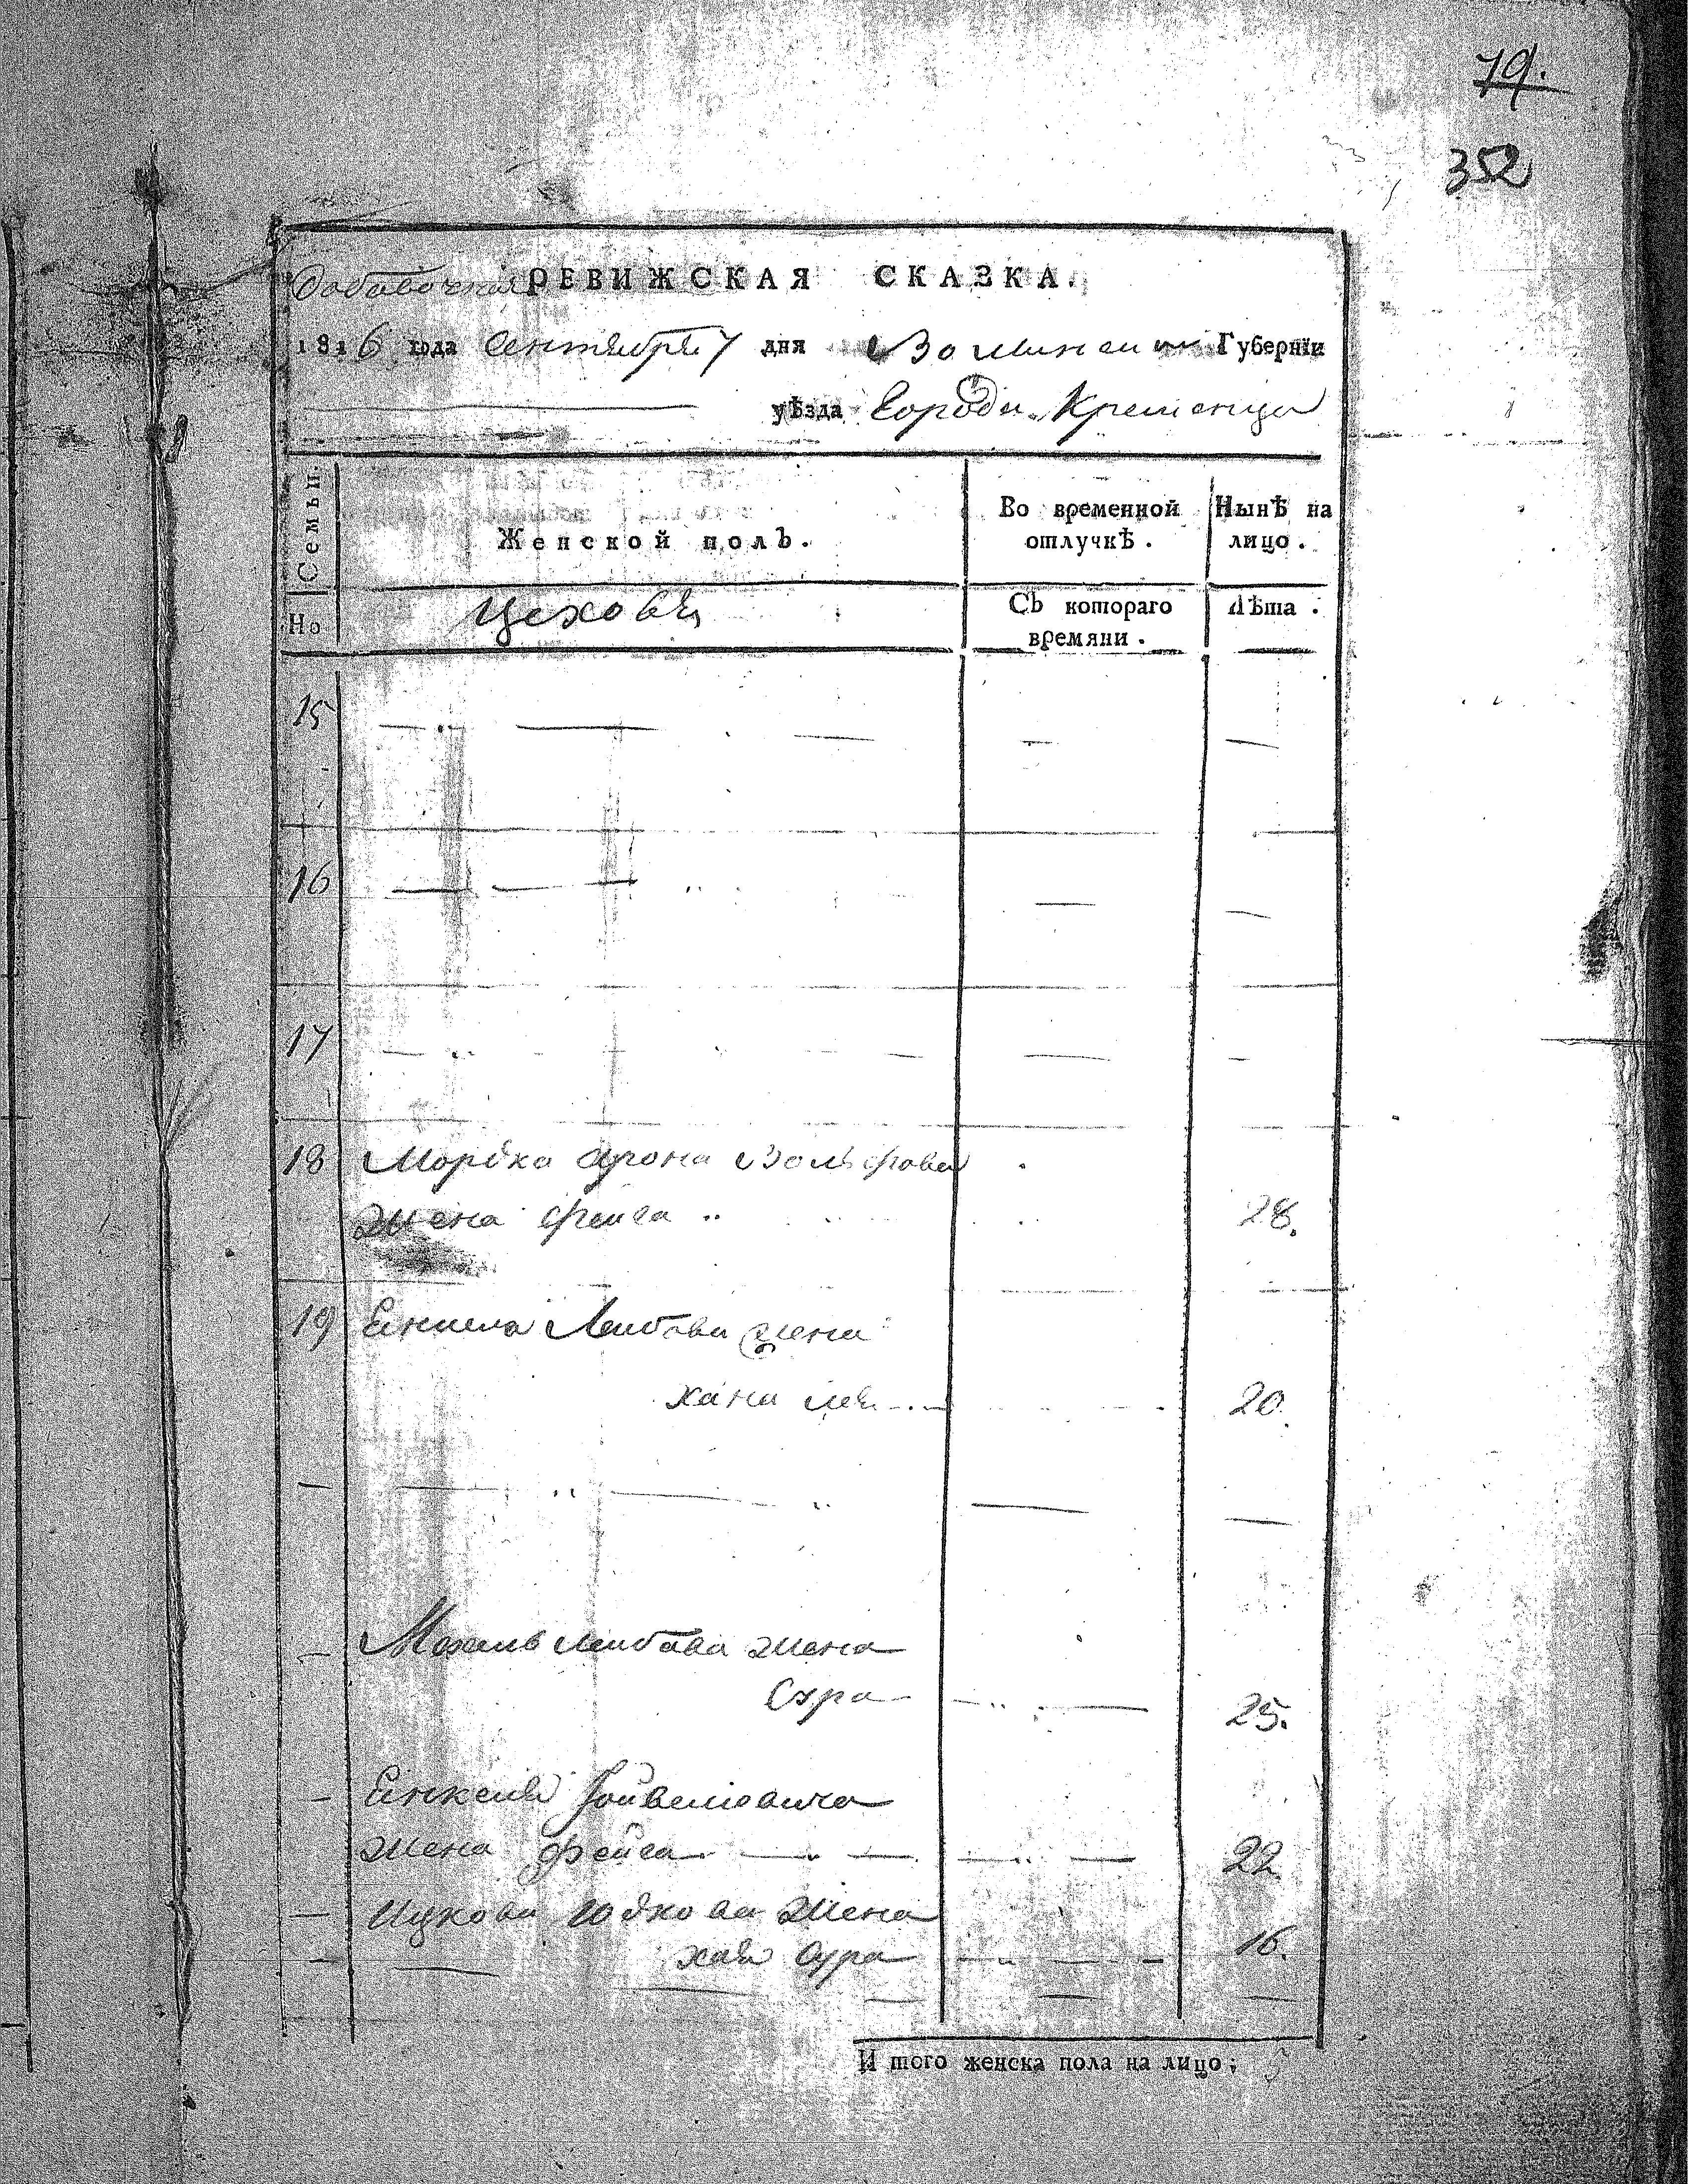 79.
352
Добавочная РЕВИЖСКАЯ СКАЗКА.
1816 года Сентября 7 дня Волынской Губернїи
уѣзда Города Кременца
Семьи.
Женской полъ.
Во временной отлучкѣ.
Нынѣ на лицо.
Но
Цеховы
Съ котораго времяни.
Лѣта.
15
16
17
18 Мордка Арона Вольфова
жена Фейга 28.
19 Енкеля Лейбова жена
Хана Лея 20.
Лейбова жена
Сура 25.
Енкеля Фойвелиовича
жена Фейга 22
Ицкова Юдкова жена
Хая Сура 16.
И того женска пола на лицо; 5